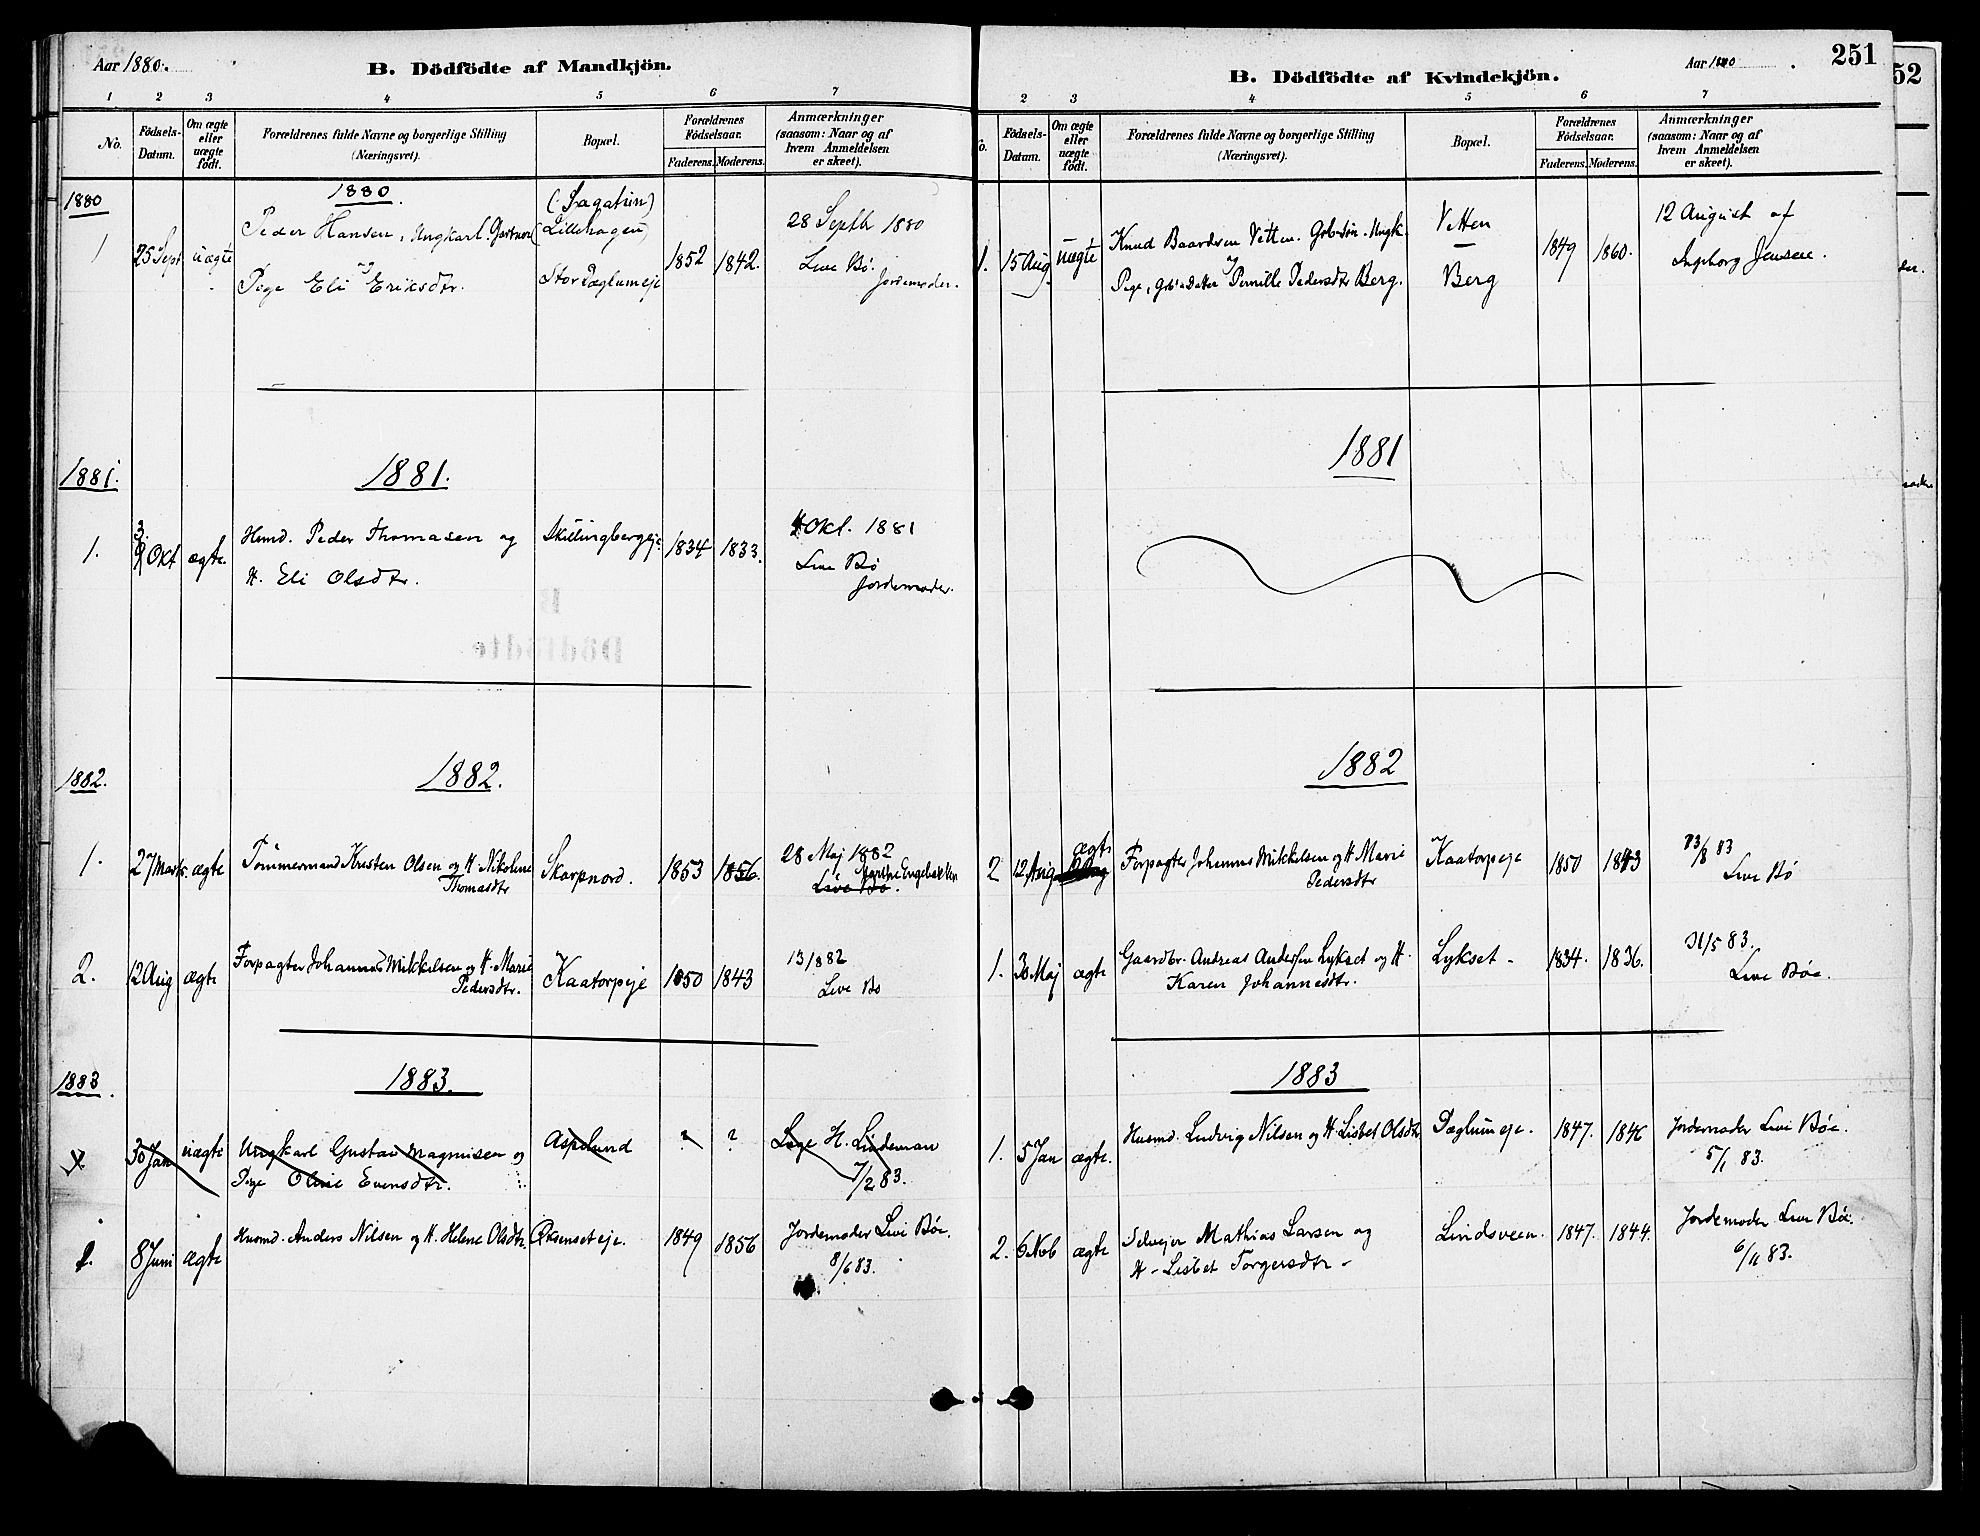 Aar 1880.
B. Dödfödte af Mandkjön.
1 2 3 4 5 6 7
No.
Födsels-Datum.
Om ægte eller uægte födt.
Forældrenes fulde Navne og borgerlige Stilling
(Næringsvei).
Bopæl.
Forældrenes Födselsaar.
Faderens. Moderens.
Anmærkninger
(saasom: Naar og af
hvem Anmeldelsen
er skeet).
1880
1880.
1 25 Sept uægte
Peder Hansen, Ungkarl. Gartner
og
Pige Eli Eriksdtr.
(Sagatun)
(Lillehagen)
Stor Dæglumeje
1852 1842.
28 Septb 1880
Live Bø.
Jordemoder.
1881.
1881.
1. 3 Okt ægte.
Husmd. Peder Thomasen og
H. Eli Olsdtr.
Skillingbergeje
1834 1833.
4 Okt. 1881
Live Bø
Jordemoder.
B
Dödfödte
1882.
1882.
1. 27 Marts. ægte
Tømmermand Kristen Olsen og H. Nikoline
Thomasdtr
Skarpnord.
1853 1856.
28 Maj 1882
Engebakken
Live Bø.
2. 12 Aug ægte
Forpagter Johannes Mikkelsen og H. Marie
Pedersdtr.
Kaatorpeje
1850 1843
13/8 82
Live Bø
1883.
1883.
30 Jan uægte
Ungkarl Gustav Magnusen og
Pige Oline Evensdtr.
Aspelund
? ?
Læge H. Lindeman
7/2 83.
1. 8 Juni ægte
Husmd. Anders Nilsen og H. Helene Olsdtr.
Øksenseteje.
1849 1856
Jordemoder Livi Bøe.
8/6 83.
B. Dödfödte af Kvindekjön.
Aar 1880.
251
2 3 4 5 6 7
o.
Födsels-Datum.
Om ægte eller uægte födt.
Forældrenes fulde Navne og borgerlige Stilling
(Næringsvei).
Bopæl.
Forældrenes Födselsaar.
Faderens. Moderens.
Anmærkninger
(saasom: Naar og af
hvem Anmeldelsen
er skeet).
1. 15 Aug. uægte
Knud Baardsen Vetten. Gbr. Søn. Ungk.
og
Pige, Gbr. Datter Pernille Pedersdtr Berg.
Vetten
Berg
1849 1860.
12 August af
Ingborg Jensen.
1881
1882
2 12 Aug ægte
Forpagter Johannes Mikkelsen og H. Marie
Pedersdtr
Kaatorpeje
1850 1843
13/8 83
Live Bø
1. 30 Maj ægte
Gaardbr. Andreas Andersen Lykset og H.
Karen Johannesdtr.
Lykset
1834. 1836.
31/5 83.
Live Bøe.
1883
1. 5 Jan ægte.
Husmd. Ludvig Nilsen og H. Lisbet Olsdtr
Dæglumeje.
1847. 1846
Jordemoder Livi Bøe.
5/1 83.
2. 6 Nob ægte
Selvejer Mathias Larsen og
H - Lisbet Torgersdtr -
Lindsveen.
1847. 1844.
Jordemoder Live Bøe.
6/11 83.
52